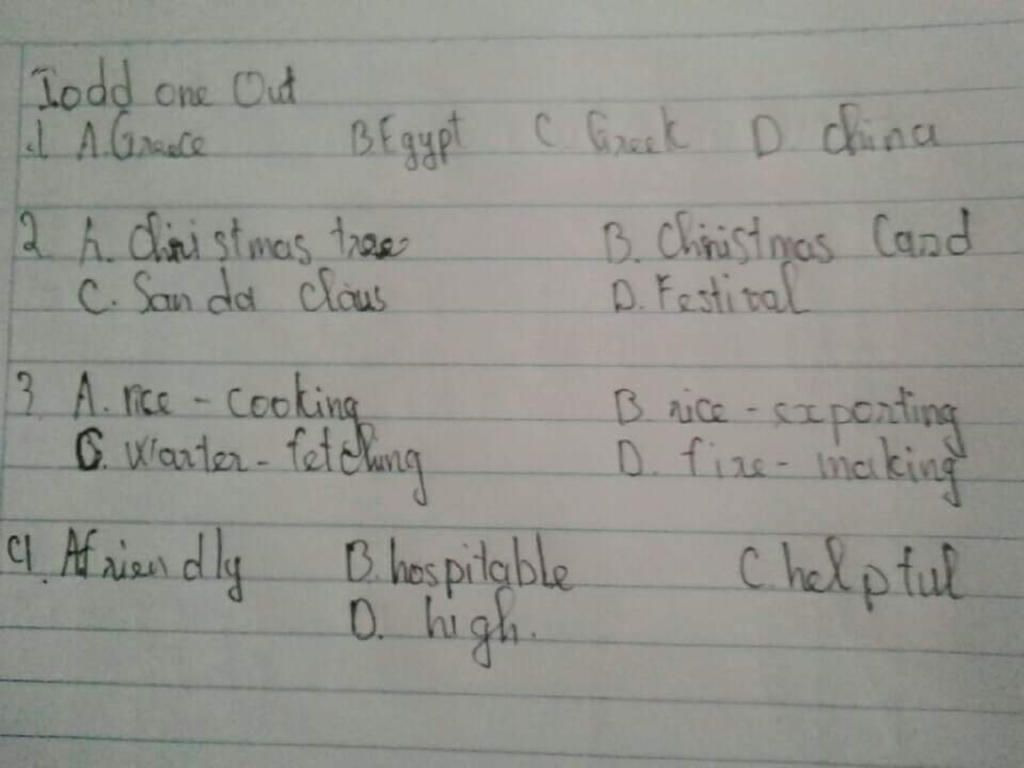 I odd one Out
.1 A. Greece B Egypt C Greek D. China
2 A. Christmas tree B. Christmas Card
C. San da Claus D. Festival
3 A. rice - cooking B rice - exporting
C. Warter - fetching D. fire - making
4. A friendly B. hospitable C helpful
D. high.